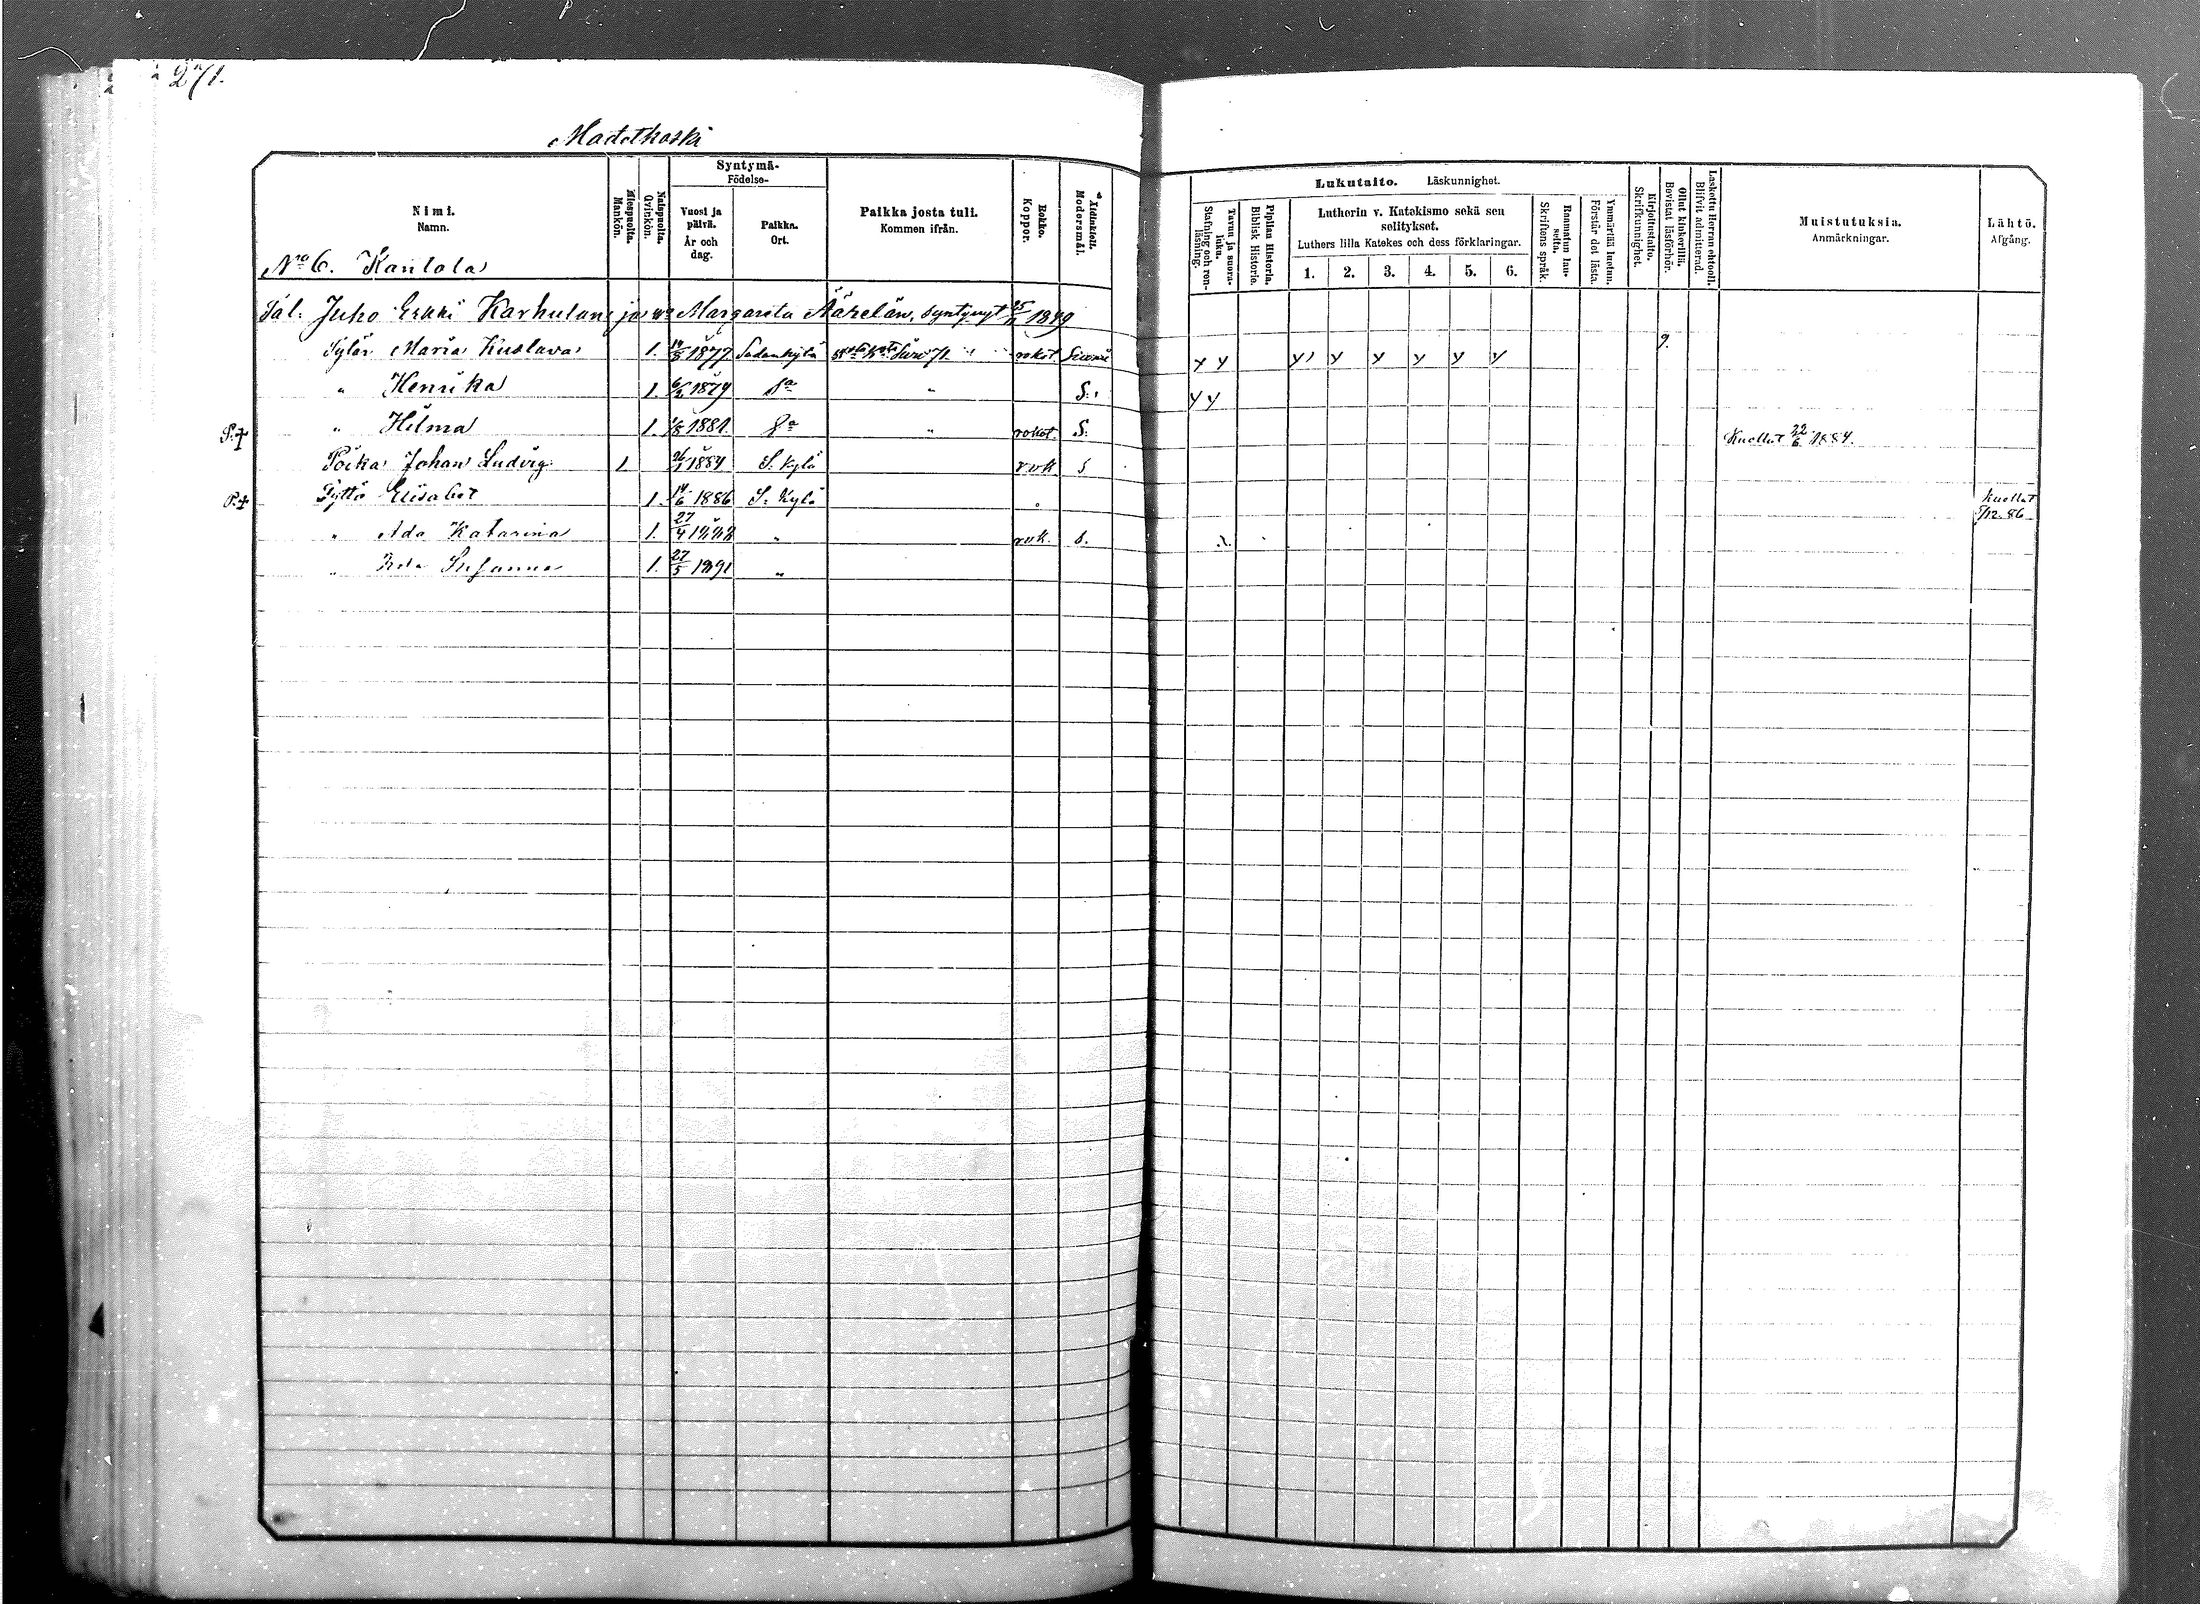 271.
Madetkoski
Nimi.
Namn.
Miespuolta.
Mankön.
Naispuolta.
Qvinkön.
Syntymä-
Födelse-
Vuosi ja
päivä.
År och
dag.
Paikka.
Ort.
Paikka josta tuli.
Kommen ifrån.
Rokko.
Koppor.
Äidinkieli.
Modersmål.
Lukutaito. Läskunnighet.
Tavuu ja suora-
luku.
Stafning och ren-
läsning.
Piplian Historia.
Biblisk Historie.
Lutherin v. Katekismo sekä sen
selitykset.
Luthers lilla Katekes och dess förklaringar.
1. 2. 3. 4. 5. 6.
Raamatun lau-
seita.
Skriftens språk.
Ymmärtää luetun.
Förstår det lästa.
Kirjoitustaito.
Skrifkunnighet.
Ollut kinkerillä.
Bevistat läsförhör.
Laskettu Herran ehtooll.
Blifvit admitterad.
Muistutuksia.
Anmärkningar.
Lähtö.
Afgång.
No 6. Kantola
Tal. Juho Erkki Karhulan ja Margareta Äärelän, syntynyt 25/11 1849
Tytär Maria Kustava 1. 14/5 1877 Sodankylä rokot Suomi y y y y y y y y 9.
" Henrika 1. 6/2 1879 Sa " S. y y
P.+ " Hilma 1. 1/8 1881. Sa " rokot. S. Kuollut 22/6 1884.
Poika Johan Ludvig 1 26/1 1884 S. kylä rok S
P.+ Tyttö Elisabet 1. 14/6 1886 S. Kylä Kuollut
5/12. 86
" Ada Katarina 1. 27/4 1888 " rok. S.
" Ida Susanna 1. 27/5 1891 "